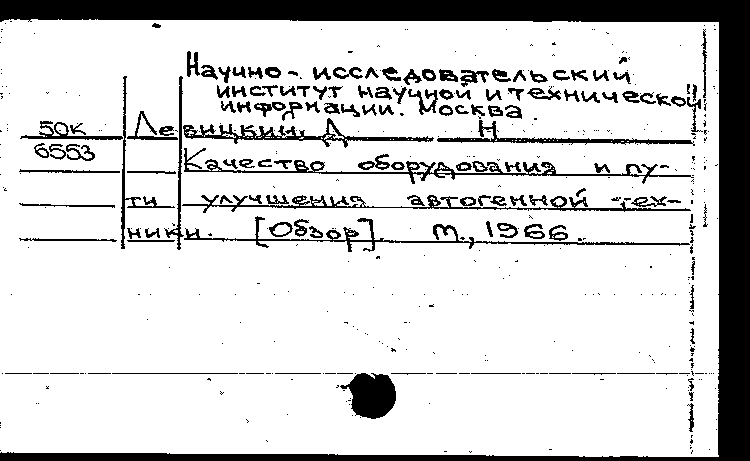 Научно-исследовательский
институт научной и технической
информации. Москва.
50к Левицкий, А Н
6553 Качество оборудования и пу-
ти улучшения автогенной тех-
ники. [Обзор]. М., 1966.